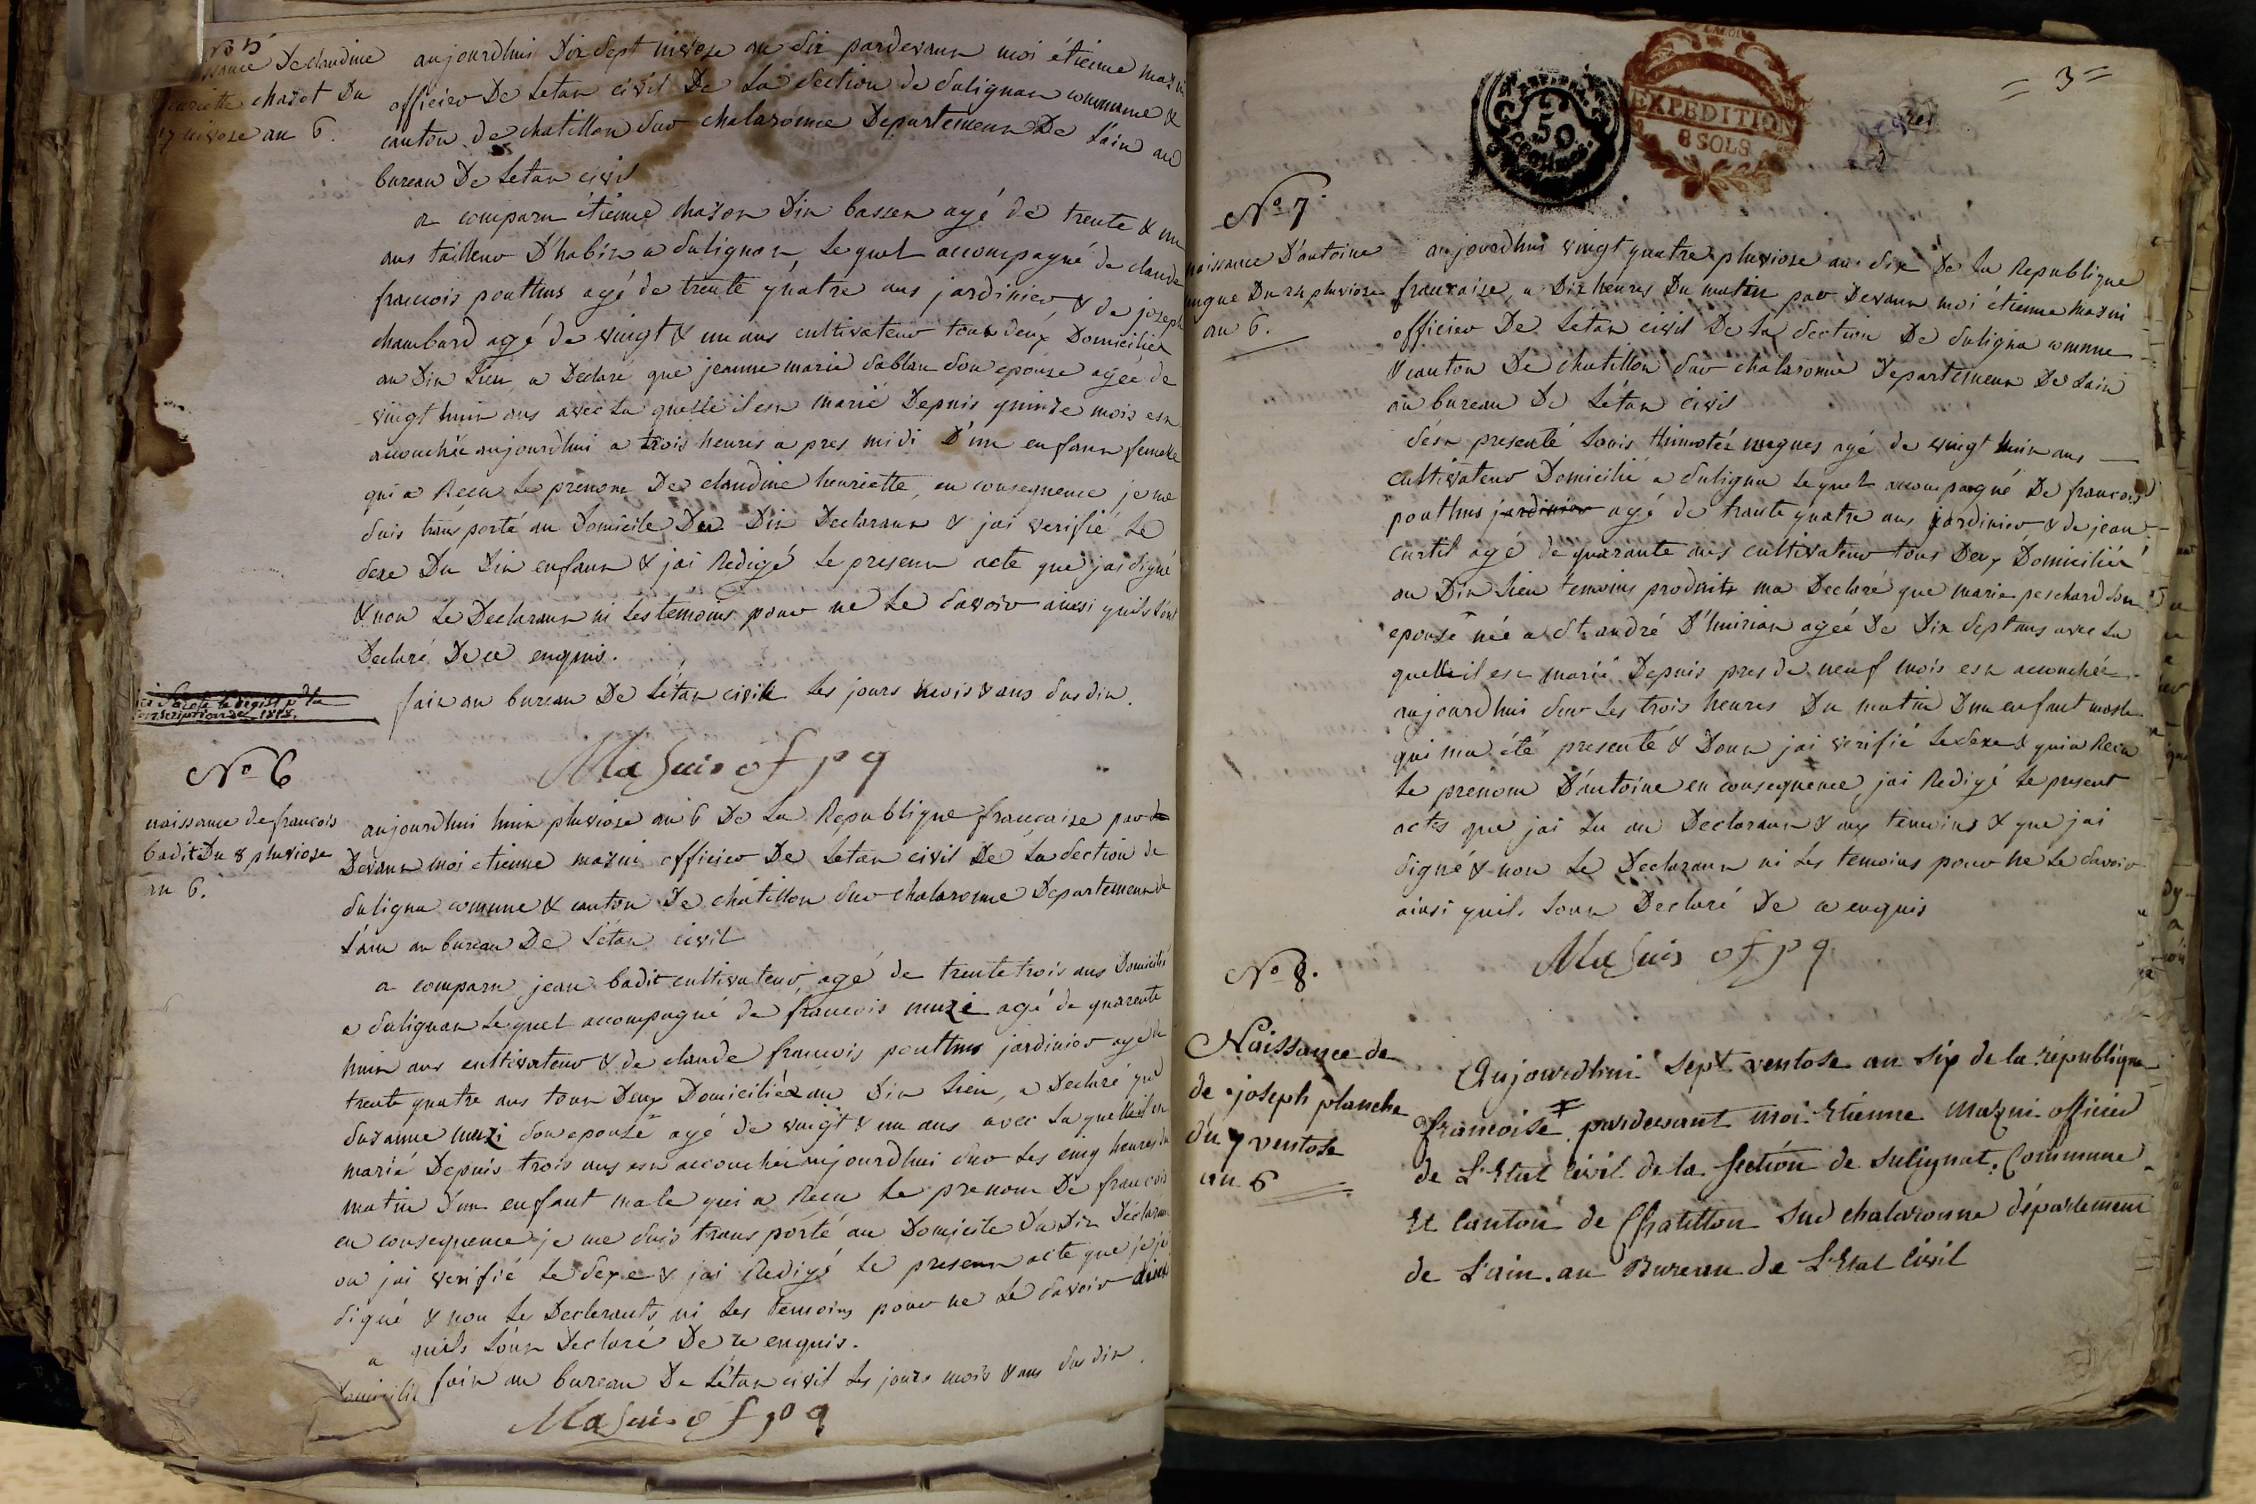 No 5
naissance De claudine
henriette chazot Du
17 nivose an 6.
aujourdhui Dix sept nivose an six pardevant moi étienne mazui
officier De Letat civil De La section de sulignat commune &
canton de chatillon sur chalaronne Departement De Lain au
bureau De Letat civil
a comparu étienne chazot Dit basset agé de trente & un
ans tailleur D'habit a sulignat, Le quel accompagné de claude
francois pouthus agé de trente quatre ans jardinier & de joseph
chambard agé de vingt & un ans cultivateur tous deux Domiciliés
au Dit Lieu, a Declaré que jeanne marie sablan son epouse agée de
vingt huit ans avec La quelle il est marié Depuis quinze mois est
accouchée aujourdhui a trois heures apres midi D'un enfant femelle
qui a Recu Le prenom De claudine henriette, en consequence je me
suis transporté au Domicile Du Dit Declarant & jai verifié Le
sexe Du Dit enfant & jai Redigé Le present acte que jai signé
& non Le Declarant ni Les temoins pour ne Le savoir ainsi quils Lont
Declaré De ce enquis.
fait au bureau De Létat civile Les jours mois & ans susdit.
Masuis of p q
No 6
naissance de francois
badit Du 8 pluviose
an 6.
aujourdhui huit pluviose an 6 De La Republique francaise par de
Devant moi etienne mazui officier De Letat civil De La section de
suligna commune & canton De châtillon sur chalaronne Departement de
Lain au bureau De Létat civil
a comparu jean badit cultivateur, agé de trente trois ans Domicilié
a sulignat Lequel accompagné de francois muzi agé de quarente
huit ans cultivateur & de claude francois pouthus jardinier agé de
trente quatre ans tous Deux Domiciliés au Dit Lieu, a Declaré que
suzanne muzi son epouse agé de vingt & un ans avec La quelle il est
marié Depuis trois ans est accouchée aujourdhui sur Les cinq heures du
matin D'un enfant male qui a Recu Le prenom De francois
en consequence je me suis transporté au Domicile Du Dit Déclarant
ou jai verifié Le sexe & jai Redigé Le present acte que je jai
signé & non Les Declarants ni Les temoins pour ne Le savoir ainsi
a quils Lont Declaré De ce enquis.
Domicilié fait au bureau De Létat civil Les jours mois & ans susdit.
Masuis of p q
= 3 =
50
CENTIMES
EXPEDITION
8 SOLS
No 7.
naissance D'antoine
Du 24 pluviose
an 6.
aujourdhui vingt quatre pluviose an six De La Republique
francaise, a Dix heures Du matin par Devant moi étienne mazui
officier De Létat civil De La section De suligna commune
& canton De chatillon sur chalaronne Departement De Lain
au bureau De Létat civil
sest presenté Louis thimotée mugnes agé de vingt huit ans
cultivateur Domicilié a suligna Lequel accompagné De francois
pouthus jardinier agé de trante quatre ans jardinier & de jean
curtil agé de quarante ans cultivateur tous Deux Domiciliés
au Dit Lieu temoins produits ma Declaré que marie peschard son
epouse née a st. andré D'huiriat agée De Dix sept ans avec La
quelle il est marié Depuis pres de neuf mois est accouchée
aujourdhui sur Les trois heures Du matin Dun enfant masle
qui ma été presenté & Dont jai verifié Le sexe & qui a Recu
Le prenom D'antoine en consequence jai Redigé Le present
acte que jai Lu au Declarant & aux temoins & que jai
signé & non Le Declarant ni Les temoins pour ne Le savoir
ainsi quil Lont Declaré De ce enquis
Masuis of p q
No 8.
Naissance de
de joseph planche
du 7 ventose
an 6
Aujourdhui sept ventose an six de la république
francoise pardevant moi Etienne Mazui officier
de L'Etat Civil de la Section de sulignat, Commune
Et Canton de Chatillon Sur chalaronne département
de L'ain, au Bureau de L'Etat Civil